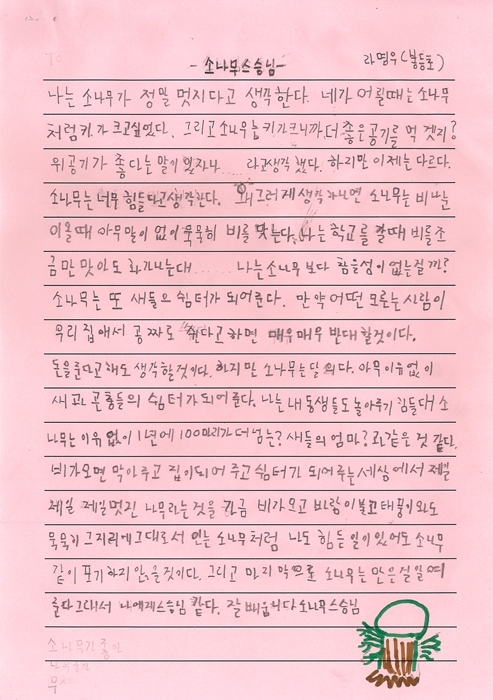 - 소나무스승님 -
라명우(봉등초)
나는 소나무가 정말 멋지다고 생각한다. 네가 어릴때는 소나무
처럼키가 크고싶었다. 그리고소나무는키가크니까,더 좋은공기를 먹 겟지?
위공기가 좋다는 말이 있자나.... 라고생각 했다. 하지만 이제는 다르다.
소나무는 너무 힘들다고생각한다. 왜그러게생각하냐면 소나무는 비나눈
이올때 아무말이 없이 묵묵히 비를 맞는다.나는 학교를 갈때 비를조
금만 맞아도 화가나는대...... 나는소나무보다 참을성이 없는걸까?
소나무는 또 새들의 쉼터가 되어준다. 만약어떤 모르는사람이
우리 집애서 공짜로 쉬다고하면 매우매우 반대할것이다.
돈을준다고해도 생각할것이다. 하지만 소나무는달의다. 아무이유없이
새과곤충들의 쉼터가되어준다. 나는내동생들도놀아주기힘들대 소
나무는이유 없이 1년에 100마리가더넘는? 새들의 엄마? 과같은 것 같다.
비가오면 막아주고 집이되어 주고쉼터가 되어주는세상에서 제일
제일 제일멋진 나무라는것을 가끔 비가오고 바람이불고태풍이와도
묵묵히그자리에그대로서 있는소나무처럼 나도 힘든일이있어도소나무
같이 포기하지않을것이다. 그리고 마지막으로 소나무는 만은걸알여
준다그래서 나에게스승님 같다. 잘배웁니다소나무스승님